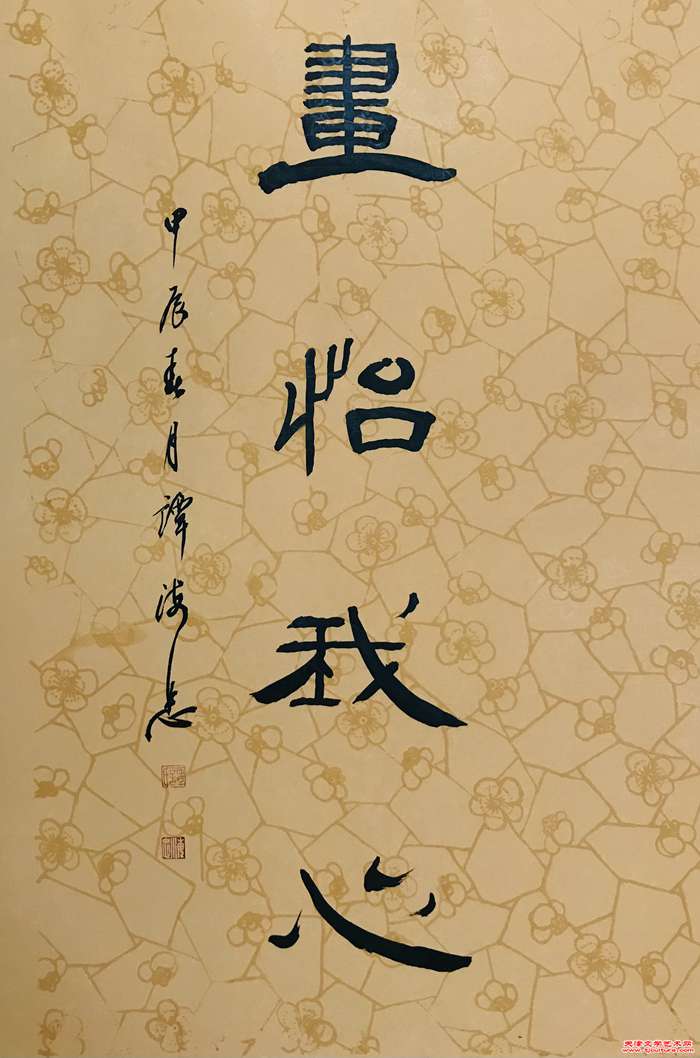 畫怡我心
甲辰春月譚海
天津文学艺术网
www.tjculture.com